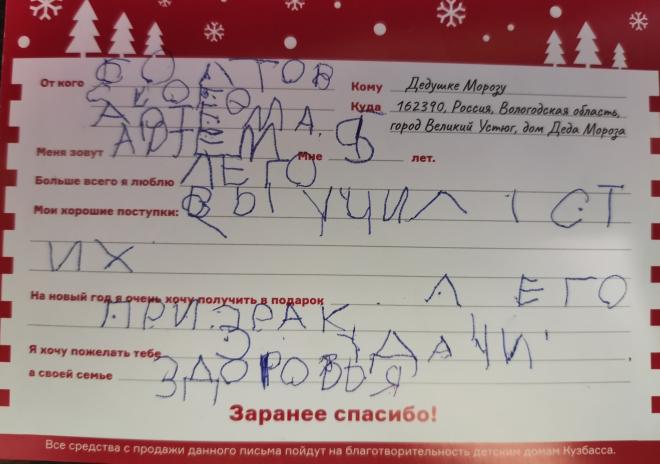 От кого БОЛТОВ Кому Дедушке Морозу
СКОГО Куда 162390, Россия, Вологодская область,
АРТЁМА. город Великий Устюг, дом Деда Мороза
Меня зовут АРТЁМ Мне 5 лет.
Больше всего я люблю ЛЕГО
Мои хорошие поступки: ВЫУЧИЛ 1 СТ
ИХ
На новый год я очень хочу получить в подарок ЛЕГО
ПРИЗРАК
Я хочу пожелать тебе УДАЧИ
а своей семье ЗДОРОВЬЯ
Заранее спасибо!
Все средства с продажи данного письма пойдут на благотворительность детским домам Кузбасса.